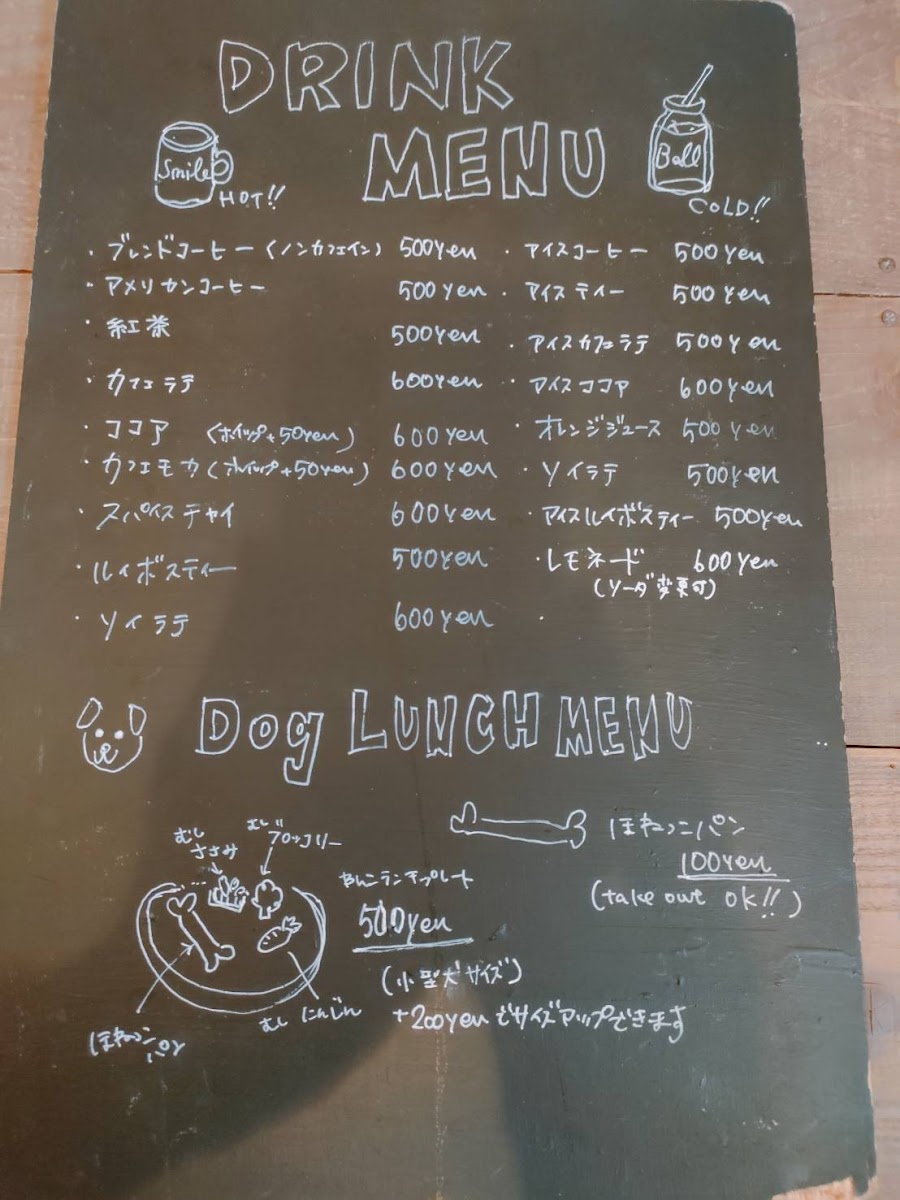 DRINK
MENU
Smile
HOT!!
Ball
COLD!!
・ブレンドコーヒー(ノンカフェイン) 500yen
・アメリカンコーヒー 500yen
・紅茶 500yen
・カフェラテ 600yen
・ココア (ホイップ+50yen) 600yen
・カフェモカ(ホイップ+50yen) 600yen
・スパイスチャイ 600yen
・ルイボスティー 500yen
・ソイラテ 600yen
・アイスコーヒー 500yen
・アイスティー 500yen
・アイスカフェラテ 500yen
・アイスココア 600yen
・オレンジジュース 500yen
・ソイラテ 500yen
・アイスルイボスティー 500yen
・レモネード 600yen
(ソーダ変更可)
Dog LUNCH MENU
むし
ささみ
むし
ブロッコリー
ほねっこ
パン
むし にんじん
わんこランチプレート
500yen
(小型犬サイズ)
+200yenでサイズアップできます
ほねっこパン
100yen
(take out ok!!)